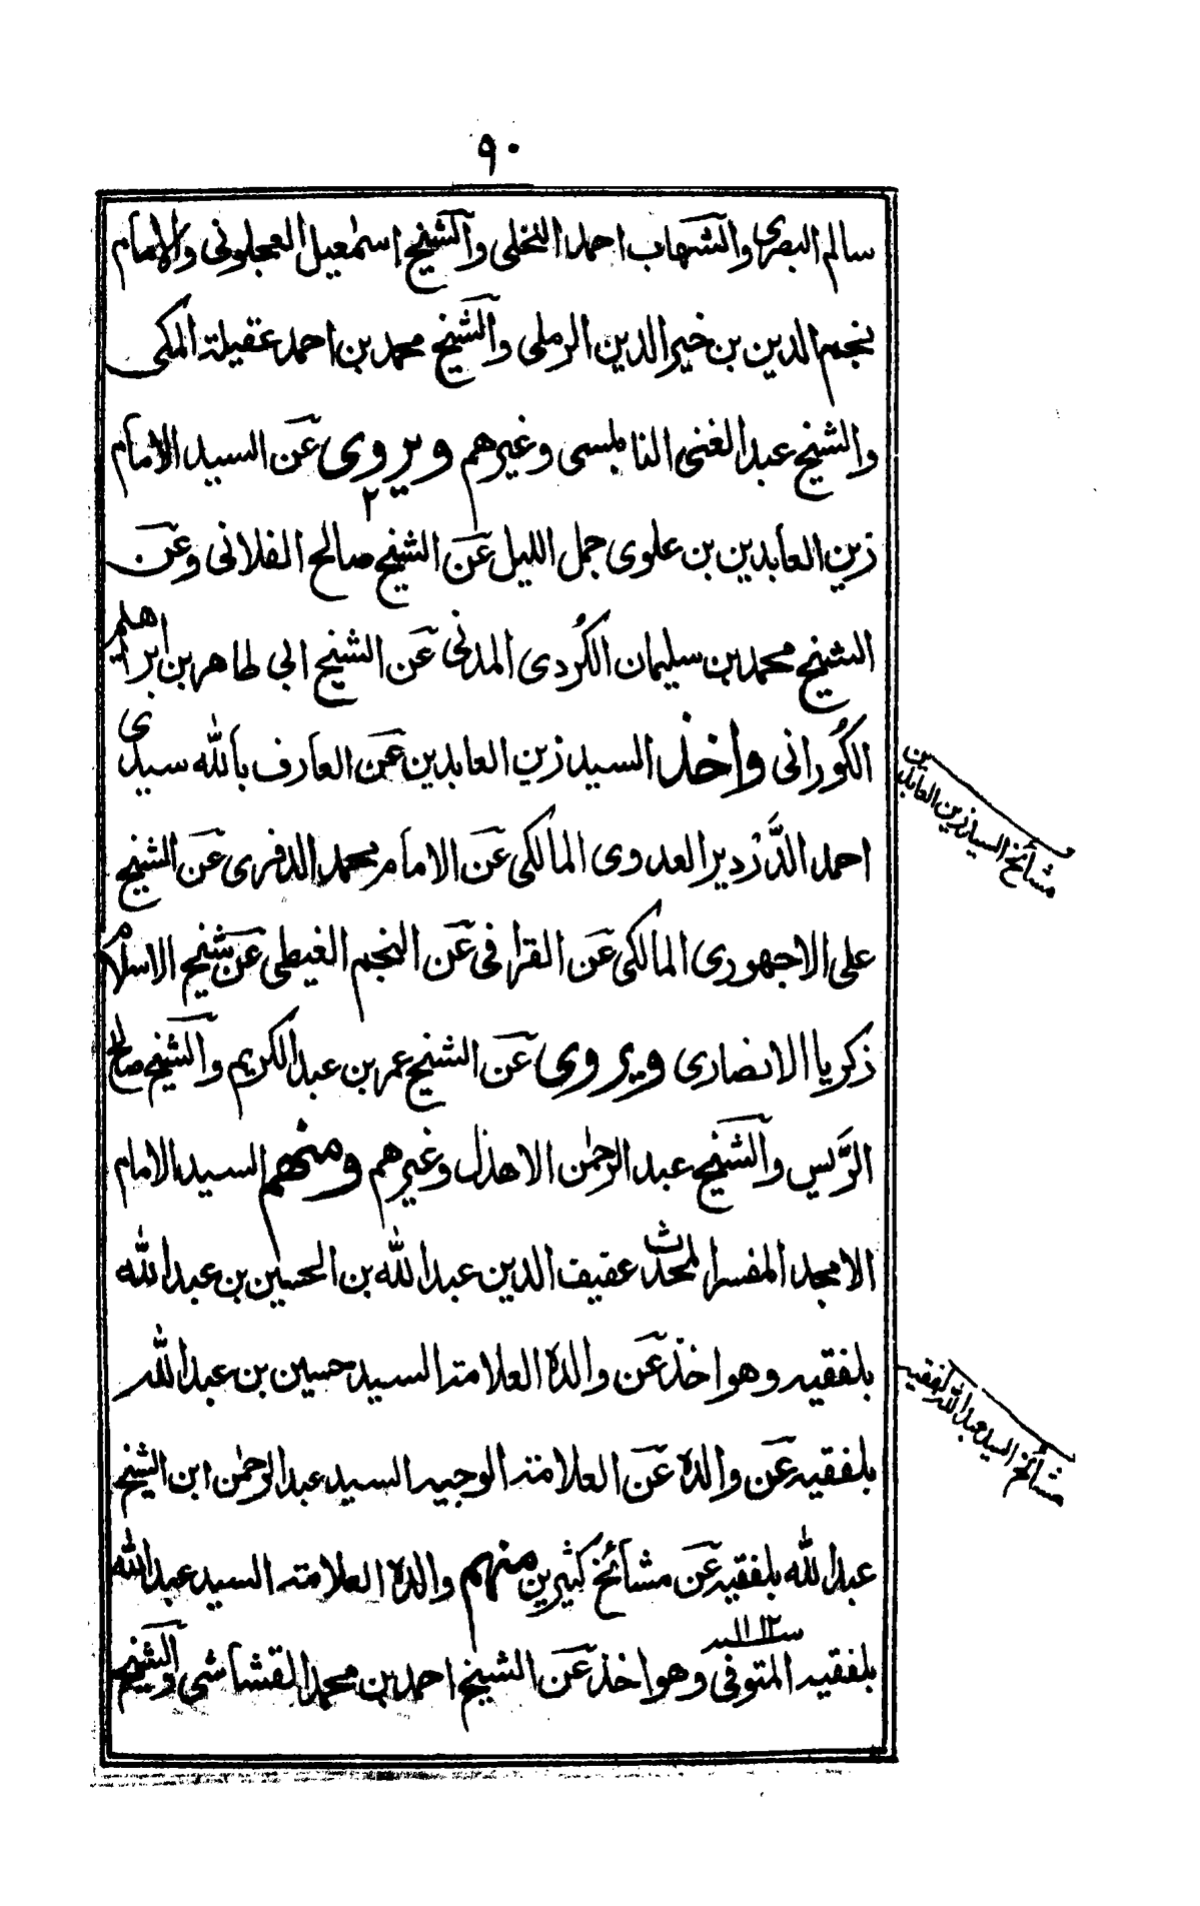 ٩٠
سالم البصری والشهاب احمد النخلی والشیخ اسمٰعیل العجلونی والامام
نجم الدین بن خیر الدین الرملی والشیخ محمد بن احمد عقیلة المکی
والشیخ عبد الغنی النابلسی وغیرهم ویروی عَن السید الامام
٢
زین العابدین بن علوی جمل اللیل عَن الشیخ صالح الفلانی وعَن
الشیخ محمد بن سلیمان الکُردی المدنی عَن الشیخ ابی طاهر بن ابراهیم
الکُورانی واخذ السید زین العابدین عَن العارف بالله سیدی
احمد الدَّرْدیر العدوی المالکی عَن الامام محمد الدفری عَن الشیخ
علی الاجهوری المالکی عَن القرافی عَن النجم الغیطی عَن شیخ الاسلام
ذکریا الانصاری ویروی عَن الشیخ عمر بن عبد الکریم والشیخ صالح
الرَّیس والشیخ عبد الرحمٰن الاهدل وغیرهم ومنهم السید الامام
الامجد المفسر المحدث عفیف الدین عبد الله بن الحسین بن عبد الله
بلفقیه وهو اخذ عَن والده العلامة السید حسین بن عبد الله
بلفقیه عَن والده عَن العلامة الوجیه السید عبد الرحمٰن ابن الشیخ
عبد الله بلفقیه عَن مشائخ کثیرین منهم والده العلامة السید عبد الله
بلفقیه المتوفی سنة ١١١٢ وهو اخذ عَن الشیخ احمد بن محمد القشاشی والشیخ
مشائخ السید زین العابدین
مشائخ السید عبد الله بلفقیه